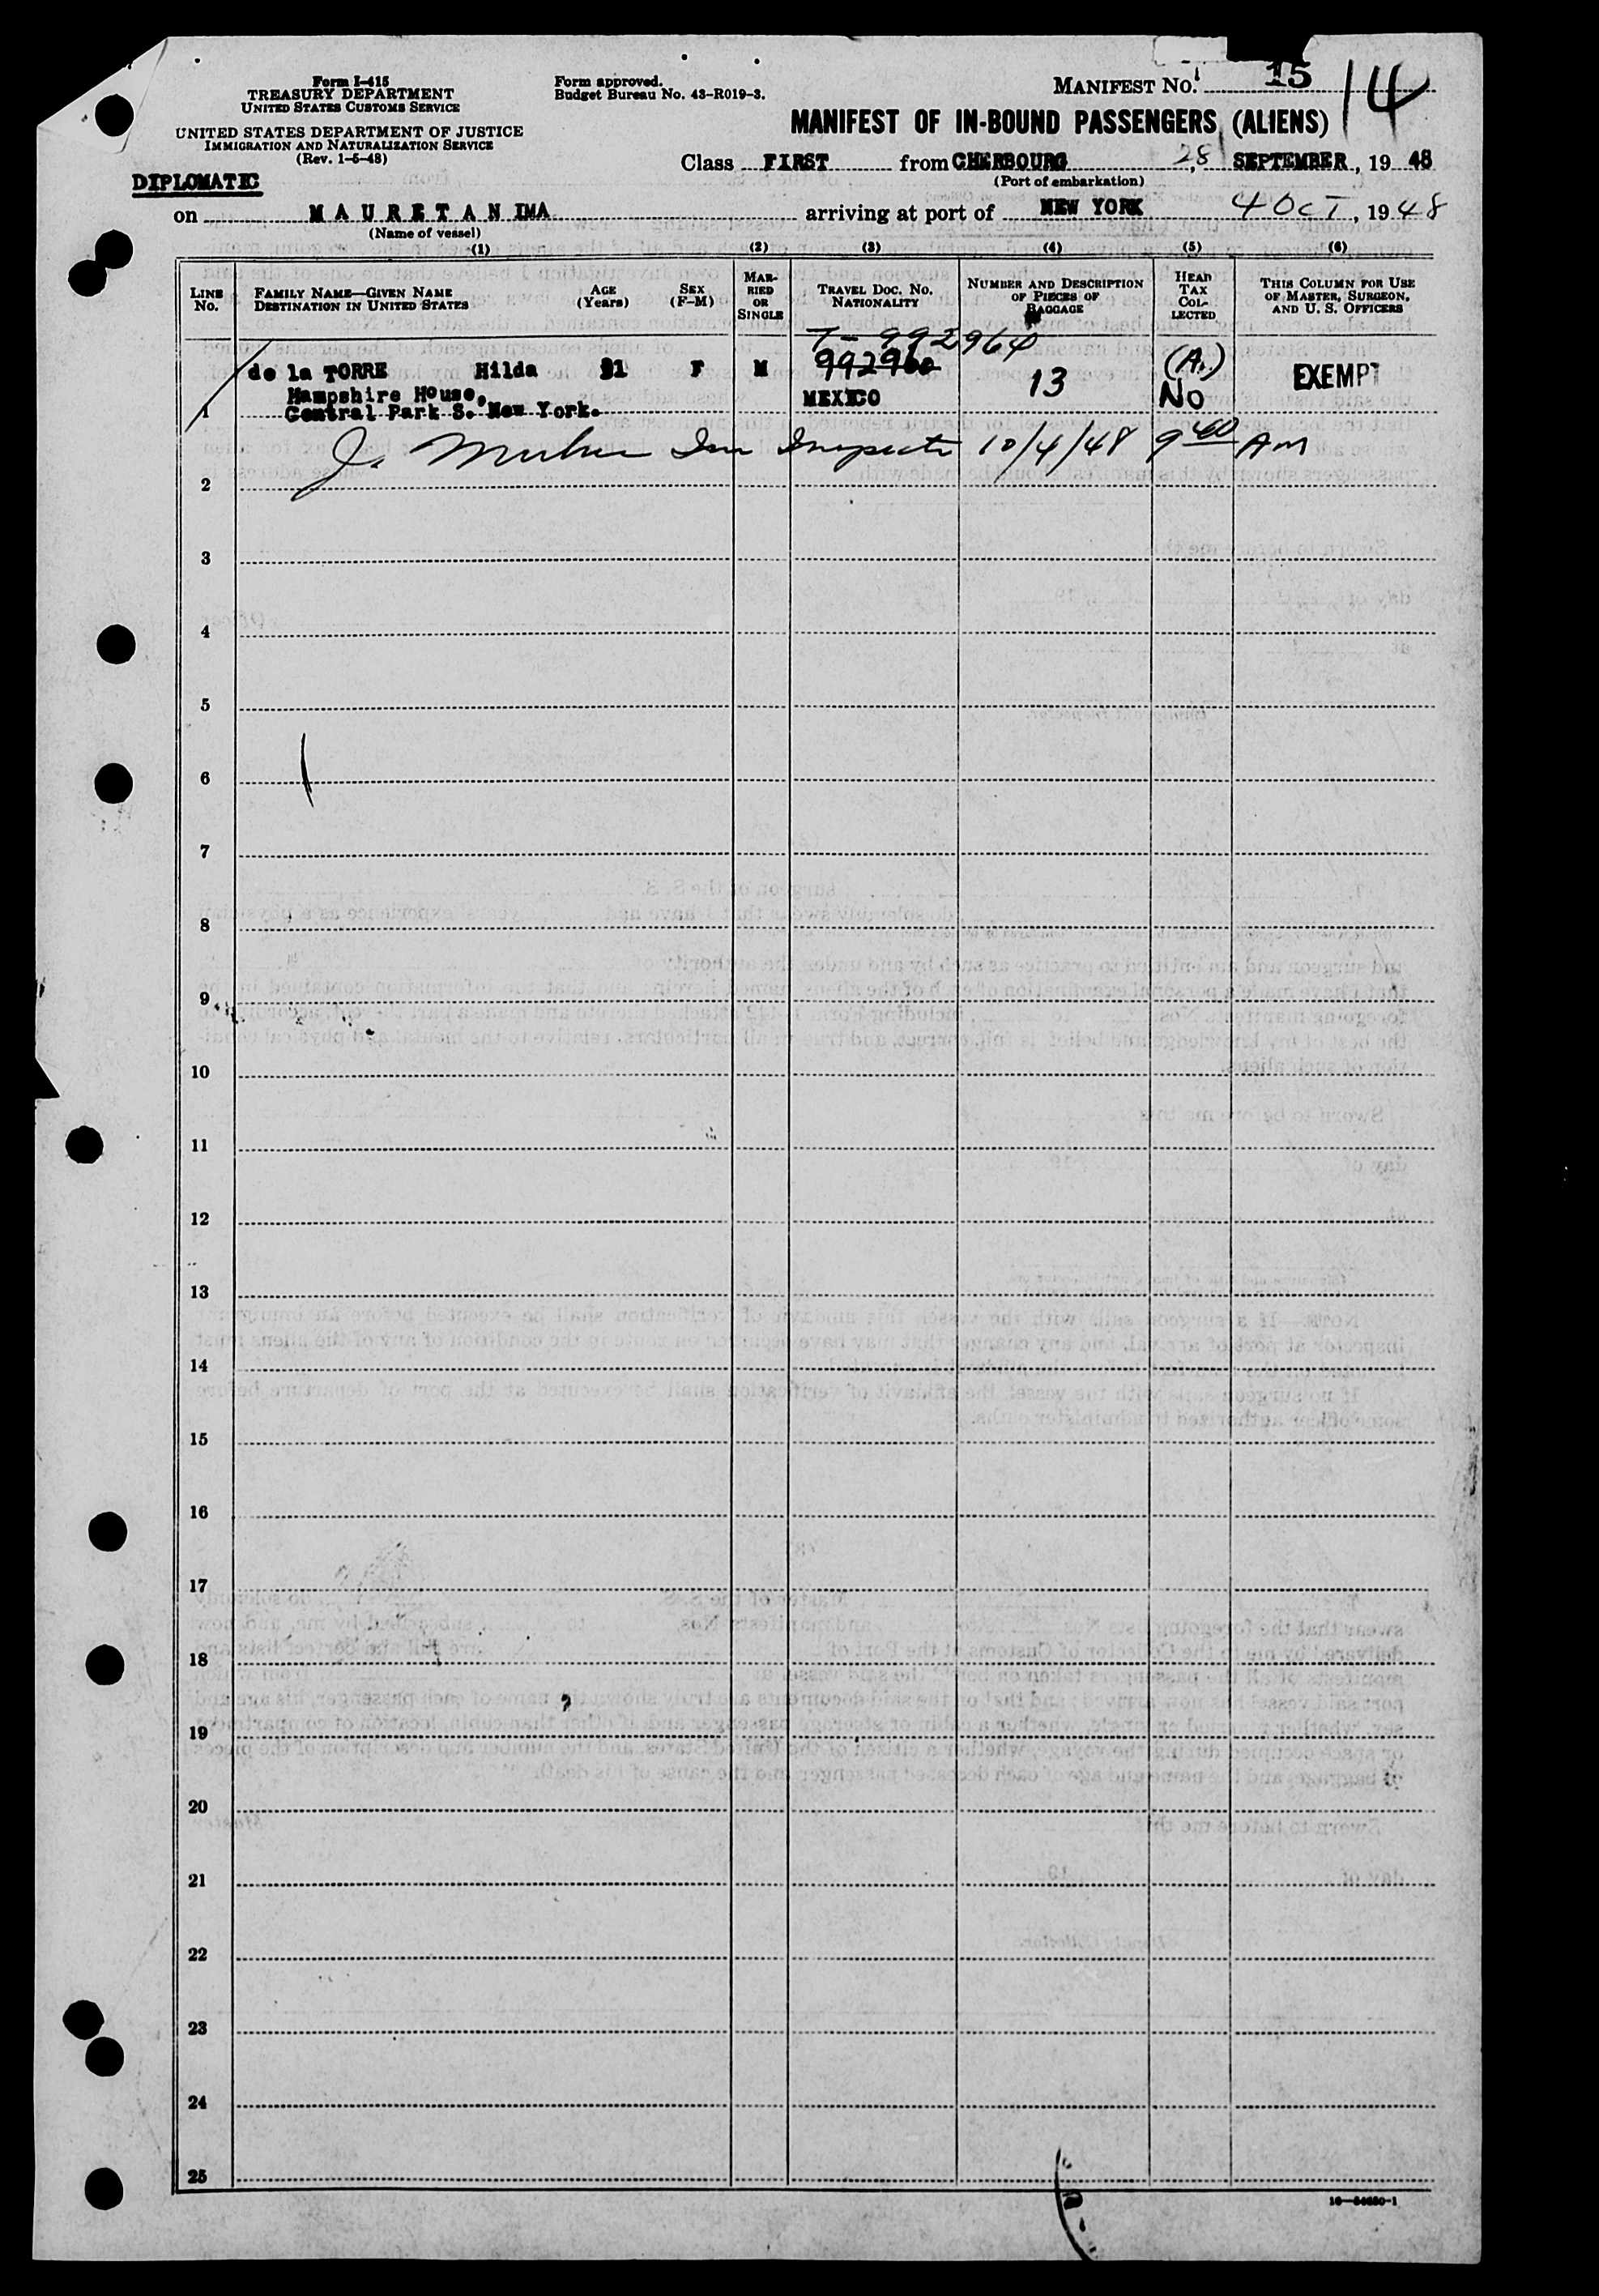 Form I-415
TREASURY DEPARTMENT
UNITED STATES CUSTOMS SERVICE
UNITED STATES DEPARTMENT OF JUSTICE
IMMIGRATION AND NATURALIZATION SERVICE
(Rev. 1-5-48)
Form approved.
Budget Bureau No. 43-R019-3.
MANIFEST No. 15 14
MANIFEST OF IN-BOUND PASSENGERS (ALIENS)
Class FIRST from CHERBOURG, 28 SEPTEMBER, 19 48
(Port of embarkation)
DIPLOMATIC
on MAURETANIA arriving at port of NEW YORK 4 OCT, 1948
(Name of vessel)
(1) (2) (3) (4) (5) (6)
LINE No.
FAMILY NAME—GIVEN NAME
DESTINATION IN UNITED STATES
AGE (Years)
SEX (F-M)
MARRIED OR SINGLE
TRAVEL DOC. NO.
NATIONALITY
NUMBER AND DESCRIPTION OF PIECES OF BAGGAGE
HEAD TAX COLLECTED
THIS COLUMN FOR USE OF MASTER, SURGEON, AND U. S. OFFICERS
T- 992964
de la TORRE Hilda F M 992960 13 (A.) EXEMPT
Hampshire House, MEXICO No
1 Central Park S. New York.
J. Imm Inspector 10/4/48 9 40 AM
2
3
4
5
6
7
8
9
10
11
12
13
14
15
16
17
18
19
20
21
22
23
24
25